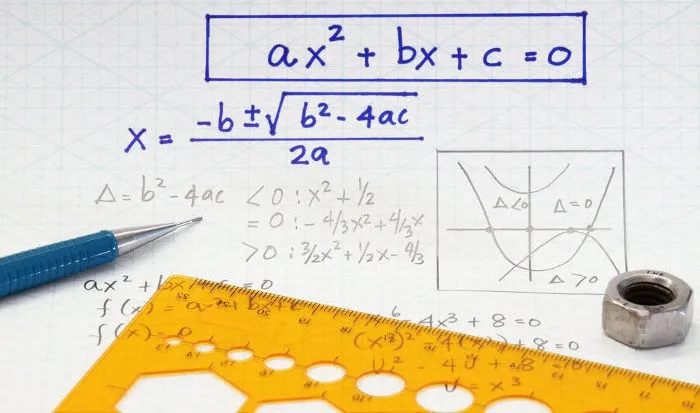 ax² + bx + c = 0
x = (-b ± √(b² - 4ac)) / 2a
Δ = b² - 4ac < 0 : x² + 1/2
= 0 : - 4/3x² + 4/3x
> 0 : 3/2x² + 1/2x - 4/3
Δ<0 Δ=0
Δ>0
ax² + bx + c = 0
f(x) = ax² + bx + c
f(x) = 0
6 - 4x³ + 8 = 0
(x³)² - 4(x³) + 8 = 0
u² - 4u + 8 =
u = x³